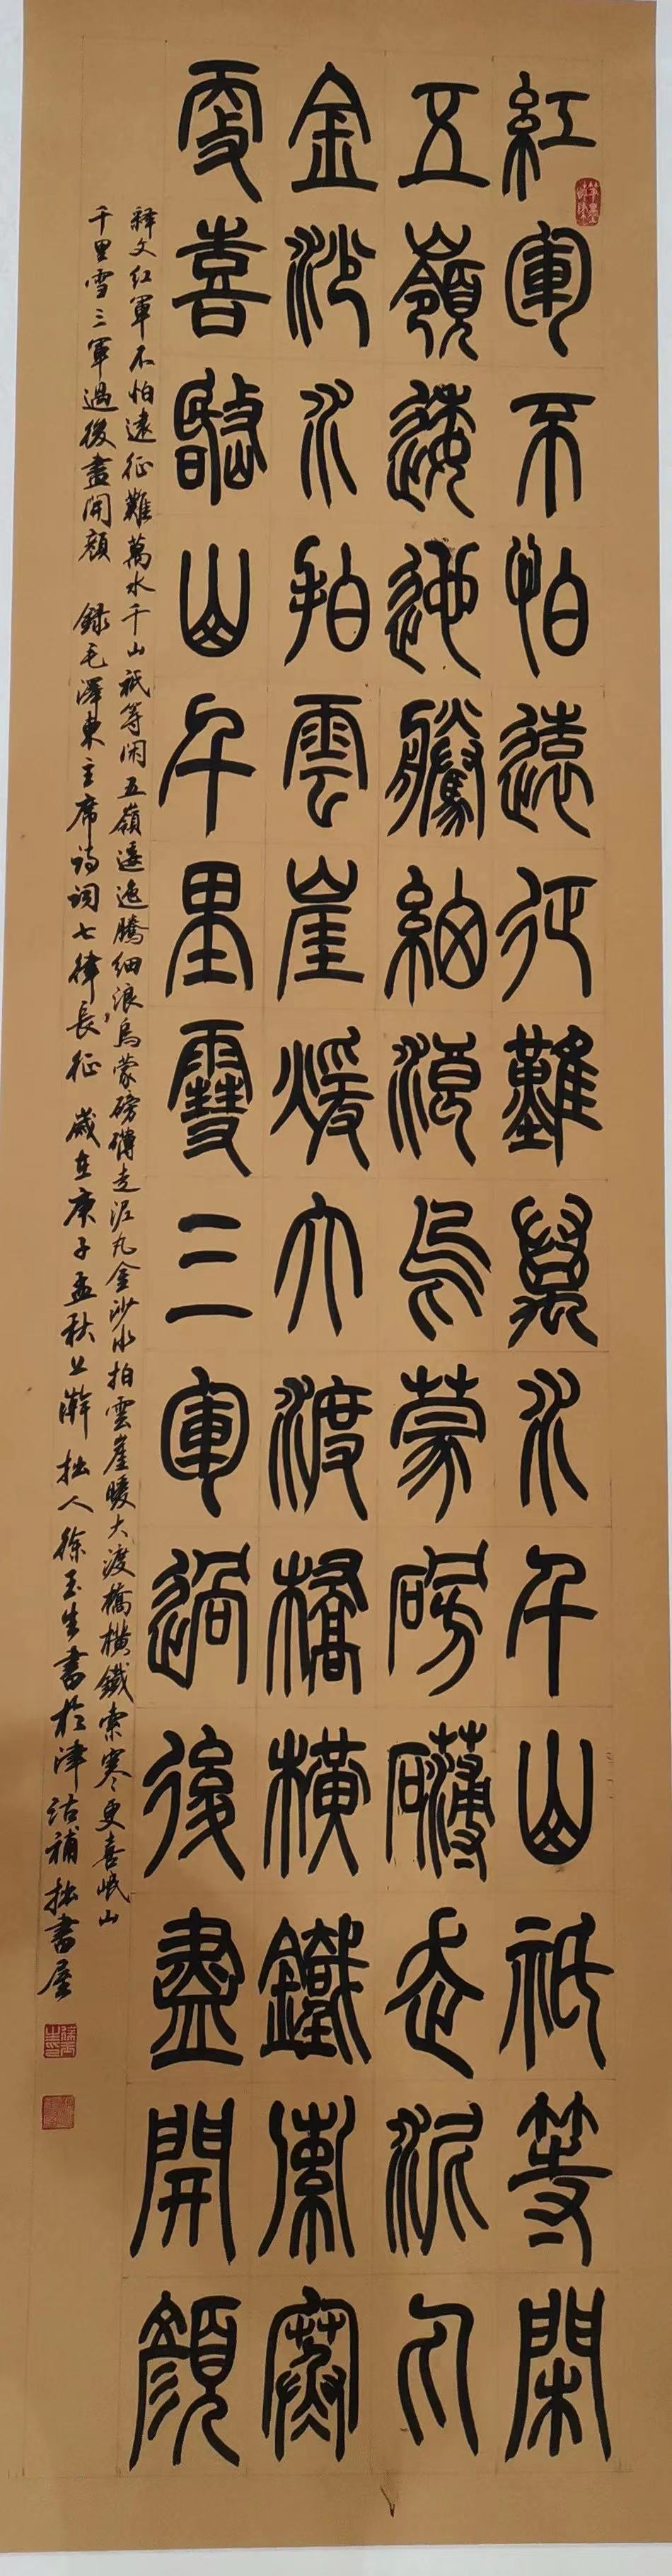 紅軍不怕遠征難萬水千山祇等閑
五嶺逶迤騰細浪烏蒙磅礴走泥丸
金沙水拍雲崖暖大渡橋橫鐵索寒
更喜岷山千里雪三軍過後盡開顏
釋文紅軍不怕遠征難萬水千山祇等閑五嶺逶迤騰細浪烏蒙磅礴走泥丸金沙水拍雲崖暖大渡橋橫鐵索寒更喜岷山
千里雪三軍過後盡開顏 錄毛澤東主席詩詞七律長征 歲在庚子孟秋上澣 拙人徐玉生書於津沽補拙書屋